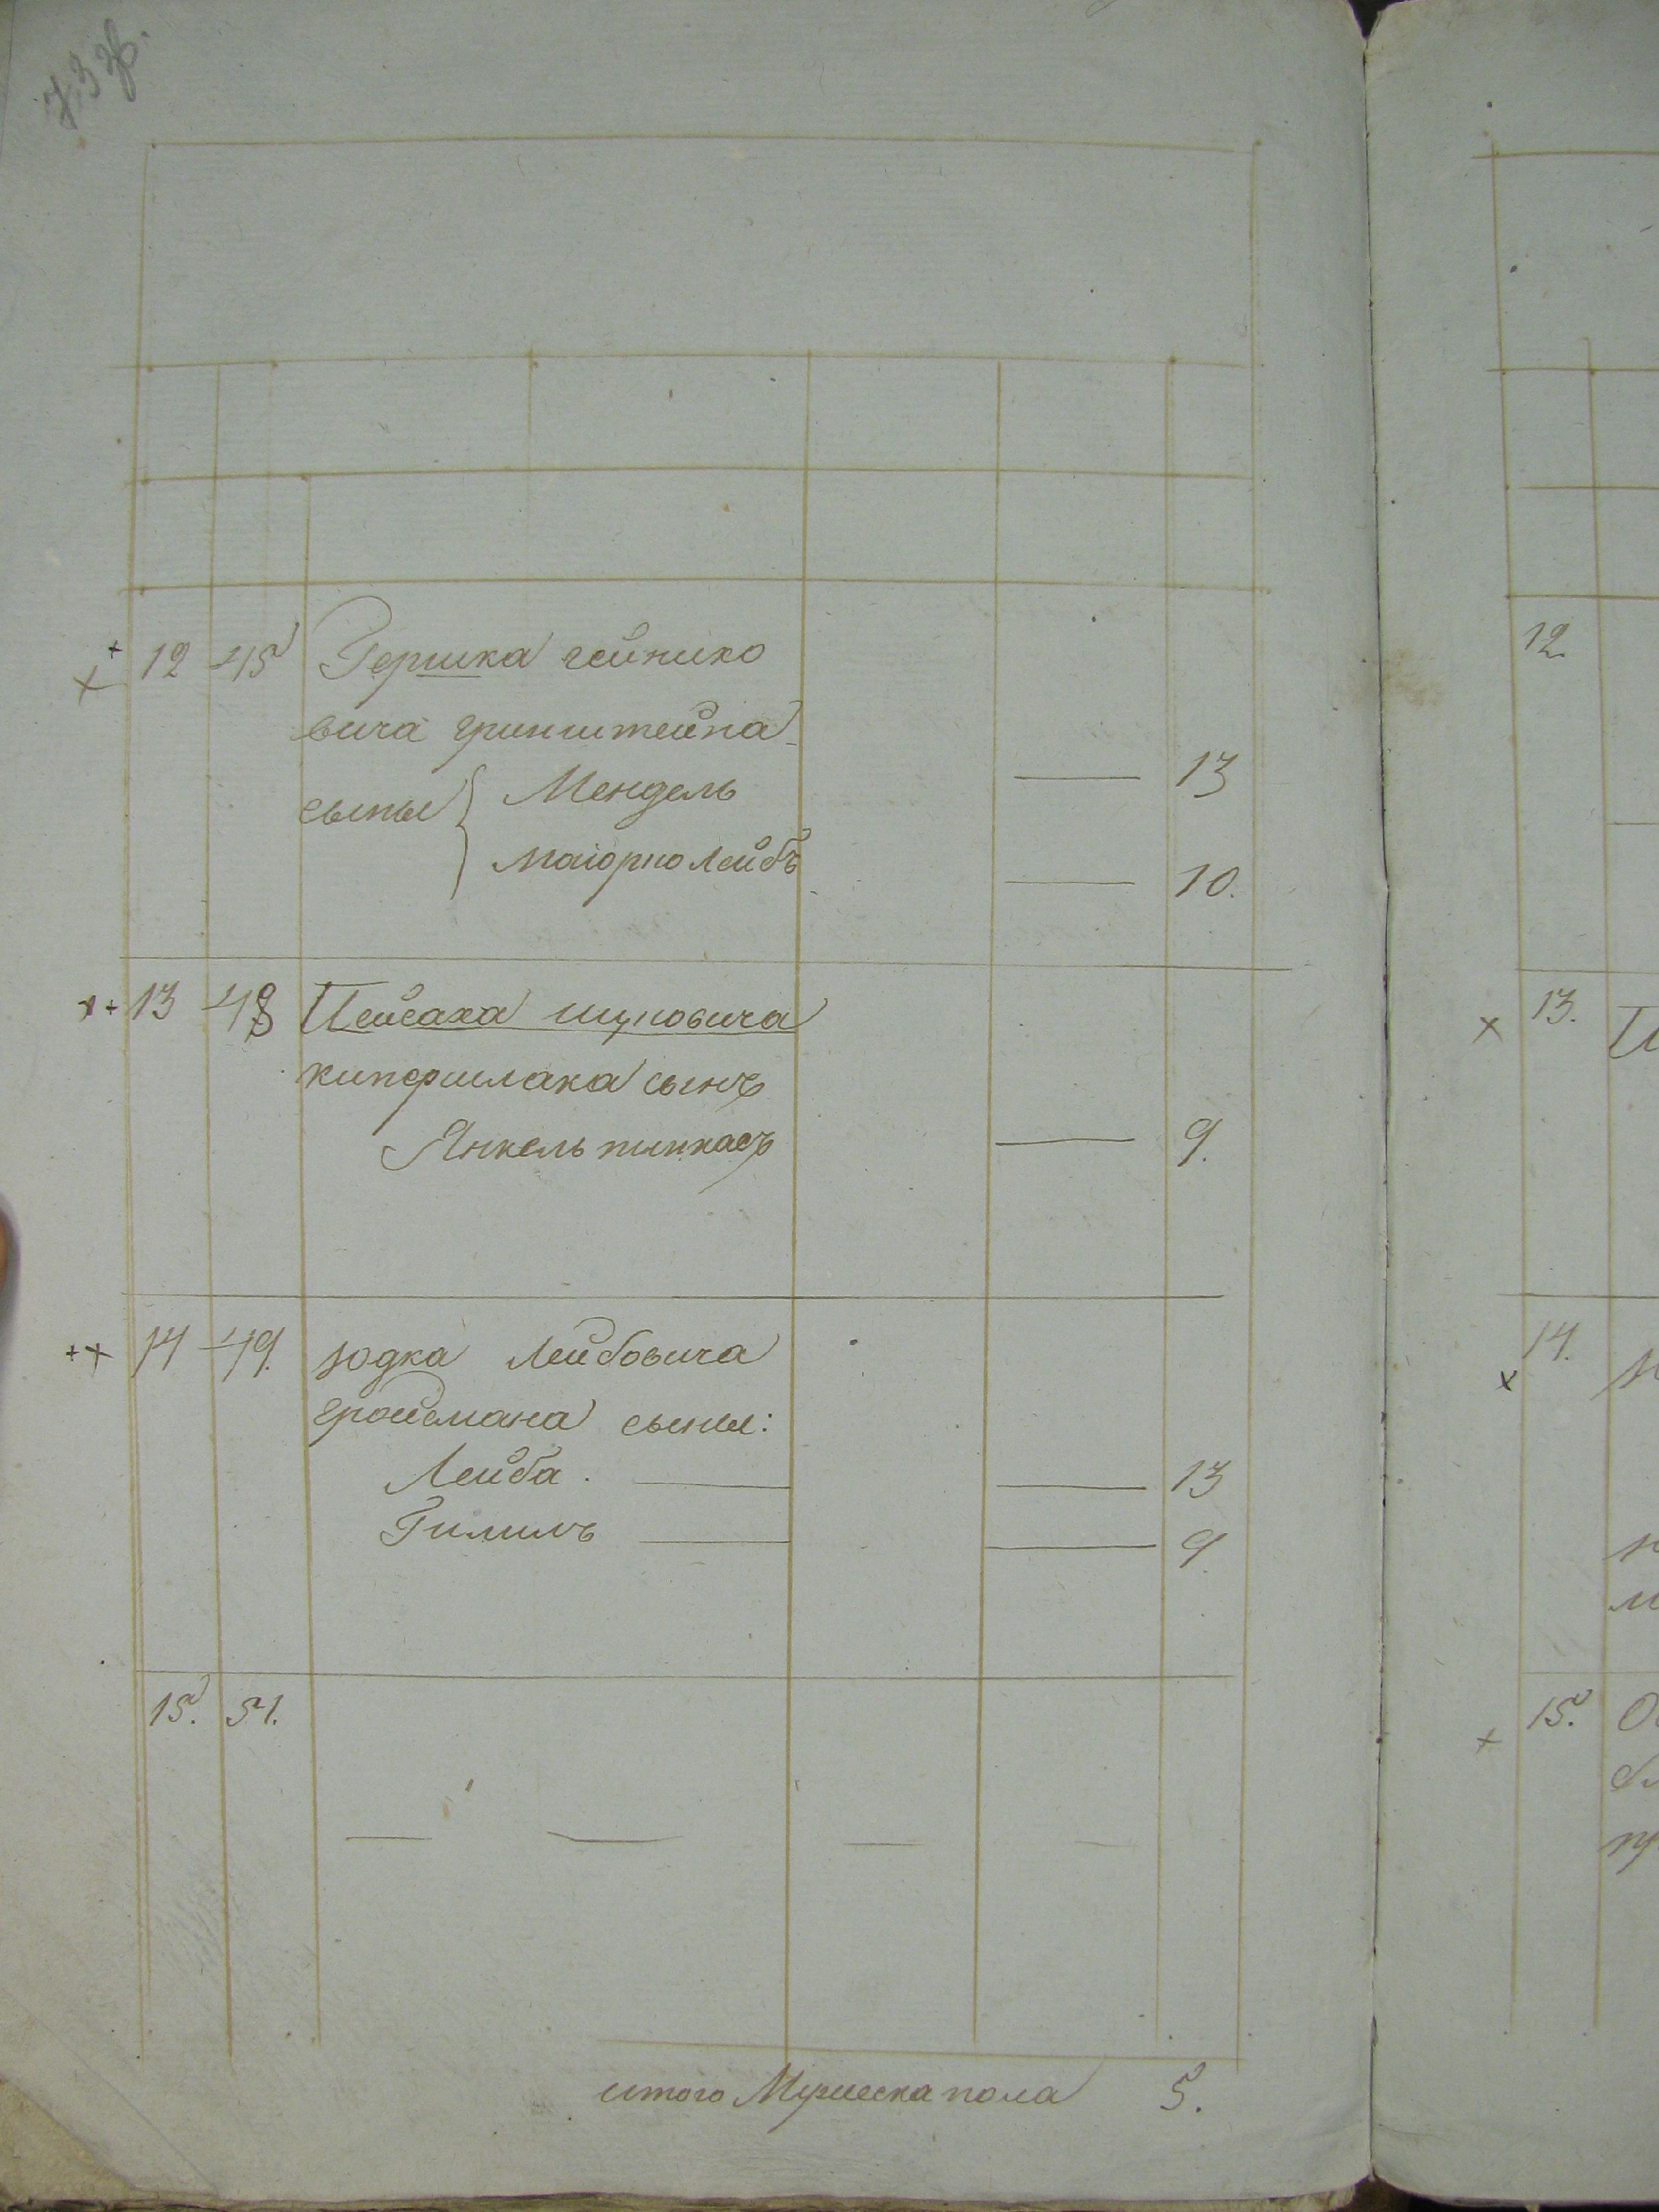 12 45 Гершка гейнико
вича гринштейна
сыны { Мендель — 13
Маіорио Лейбъ — 10.
13 48 Пейсаха шуловича
купершлака сынъ
Янкель пинкасъ — 9.
14 49. юдка Лейбовича
гройсмана сыны:
Лейба. — — 13
Гилиль — — 9
15. 51. — — — —
итого Мужеска пола 5.
12.
13.
14.
15.